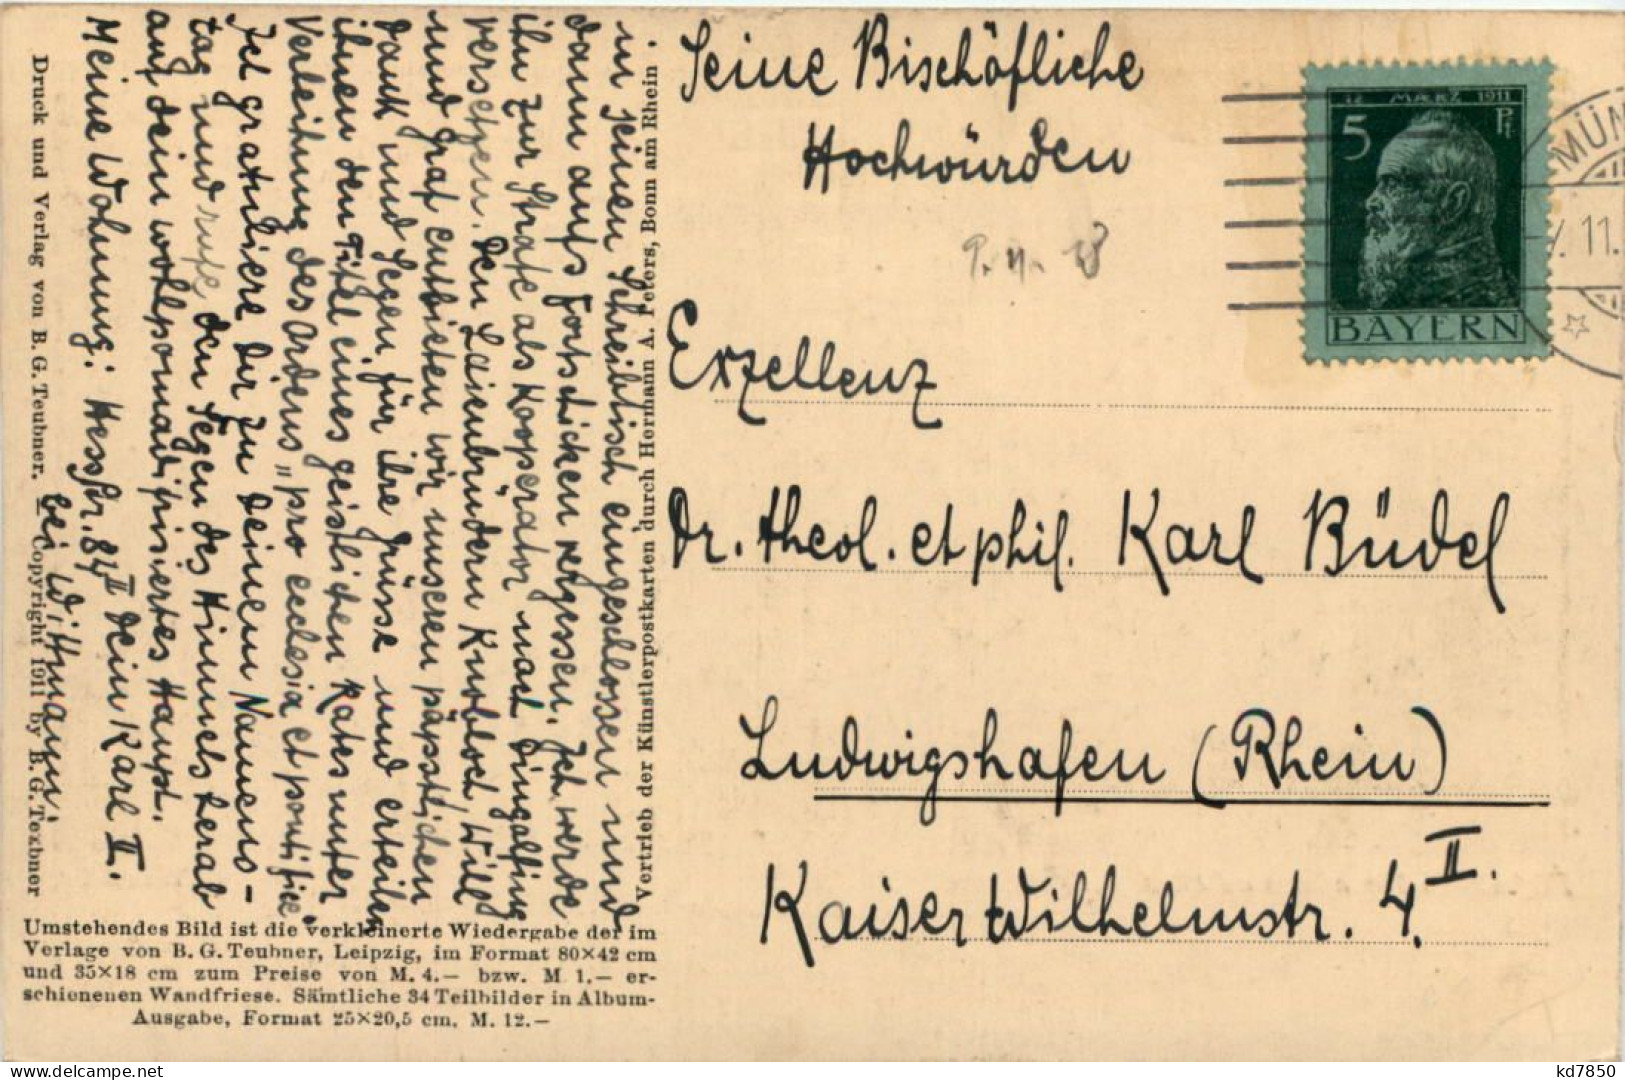 Seine Bischöfliche
Hochwürden
Exzellenz
Dr. theol. et phil. Karl Büdel
Ludwigshafen (Rhein)
Kaiser Wilhelmstr. 4 II.
12 MÆRZ 1911
5 Pf
BAYERN
MÜN
11.
in seinen Schreibtisch eingeschlossen und
dann aufs Fortschicken vergessen. Ich werde
ihn zur Strafe als Kooperator nach Dingolfing
versetzen. Den Laienbrüdern Knobloch, Will
und Graf entbieten wir unseren päpstlichen
Dank und Segen für ihre Grüsse und erteilen
ihnen den Titel eines geistlichen Rates unter
Verleihung des Ordens „pro ecclesia et pontifice.
Ich gratuliere Dir zu Deinem Namens-
tag und rufe den Segen des Himmels herab
auf dein wohlpomadifrisiertes Haupt.
Meine Wohnung: Hessstr. 84 II Dein Karl II.
bei Wittmann.
Vertrieb der Künstlerpostkarten durch Hermann A. Peters, Bonn am Rhein
Druck und Verlag von B. G. Teubner. Copyright 1911 by B. G. Teubner
Umstehendes Bild ist die verkleinerte Wiedergabe der im
Verlage von B. G. Teubner, Leipzig, im Format 80×42 cm
und 35×18 cm zum Preise von M. 4.— bzw. M 1.— er-
schienenen Wandfriese. Sämtliche 34 Teilbilder in Album-
Ausgabe, Format 25×20,5 cm. M. 12.—
kd7850